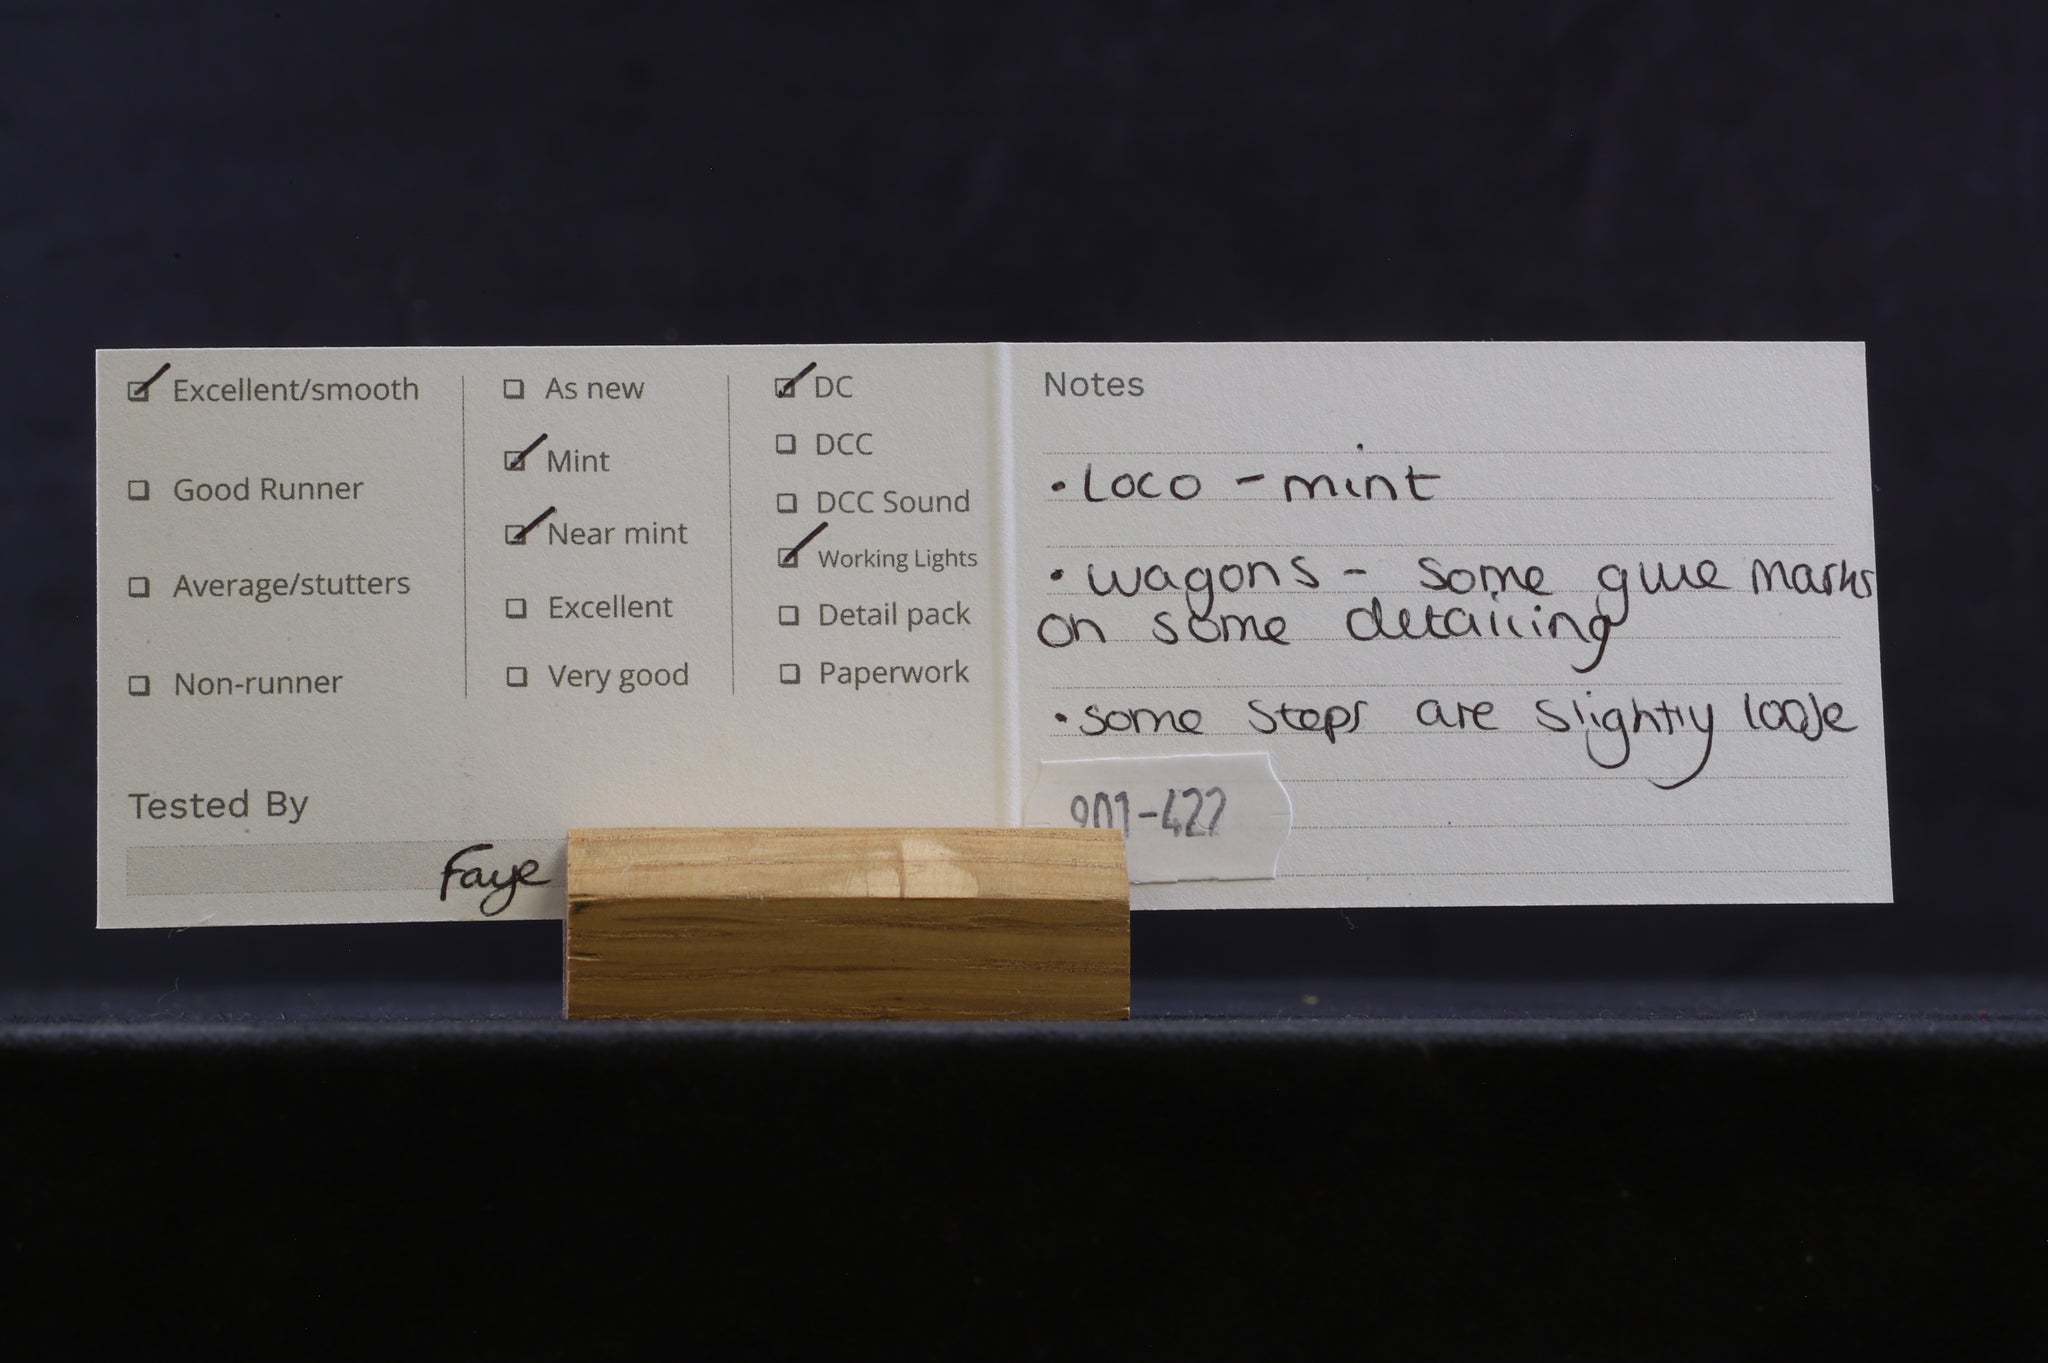 Excellent/smooth
Good Runner
Average/stutters
Non-runner
As new
Mint
Near mint
Excellent
Very good
DC
DCC
DCC Sound
Working Lights
Detail pack
Paperwork
Tested By
Faye
Notes
• Loco - mint
• wagons - some glue marks
on some detailing
• some steps are slightly loose
901-422